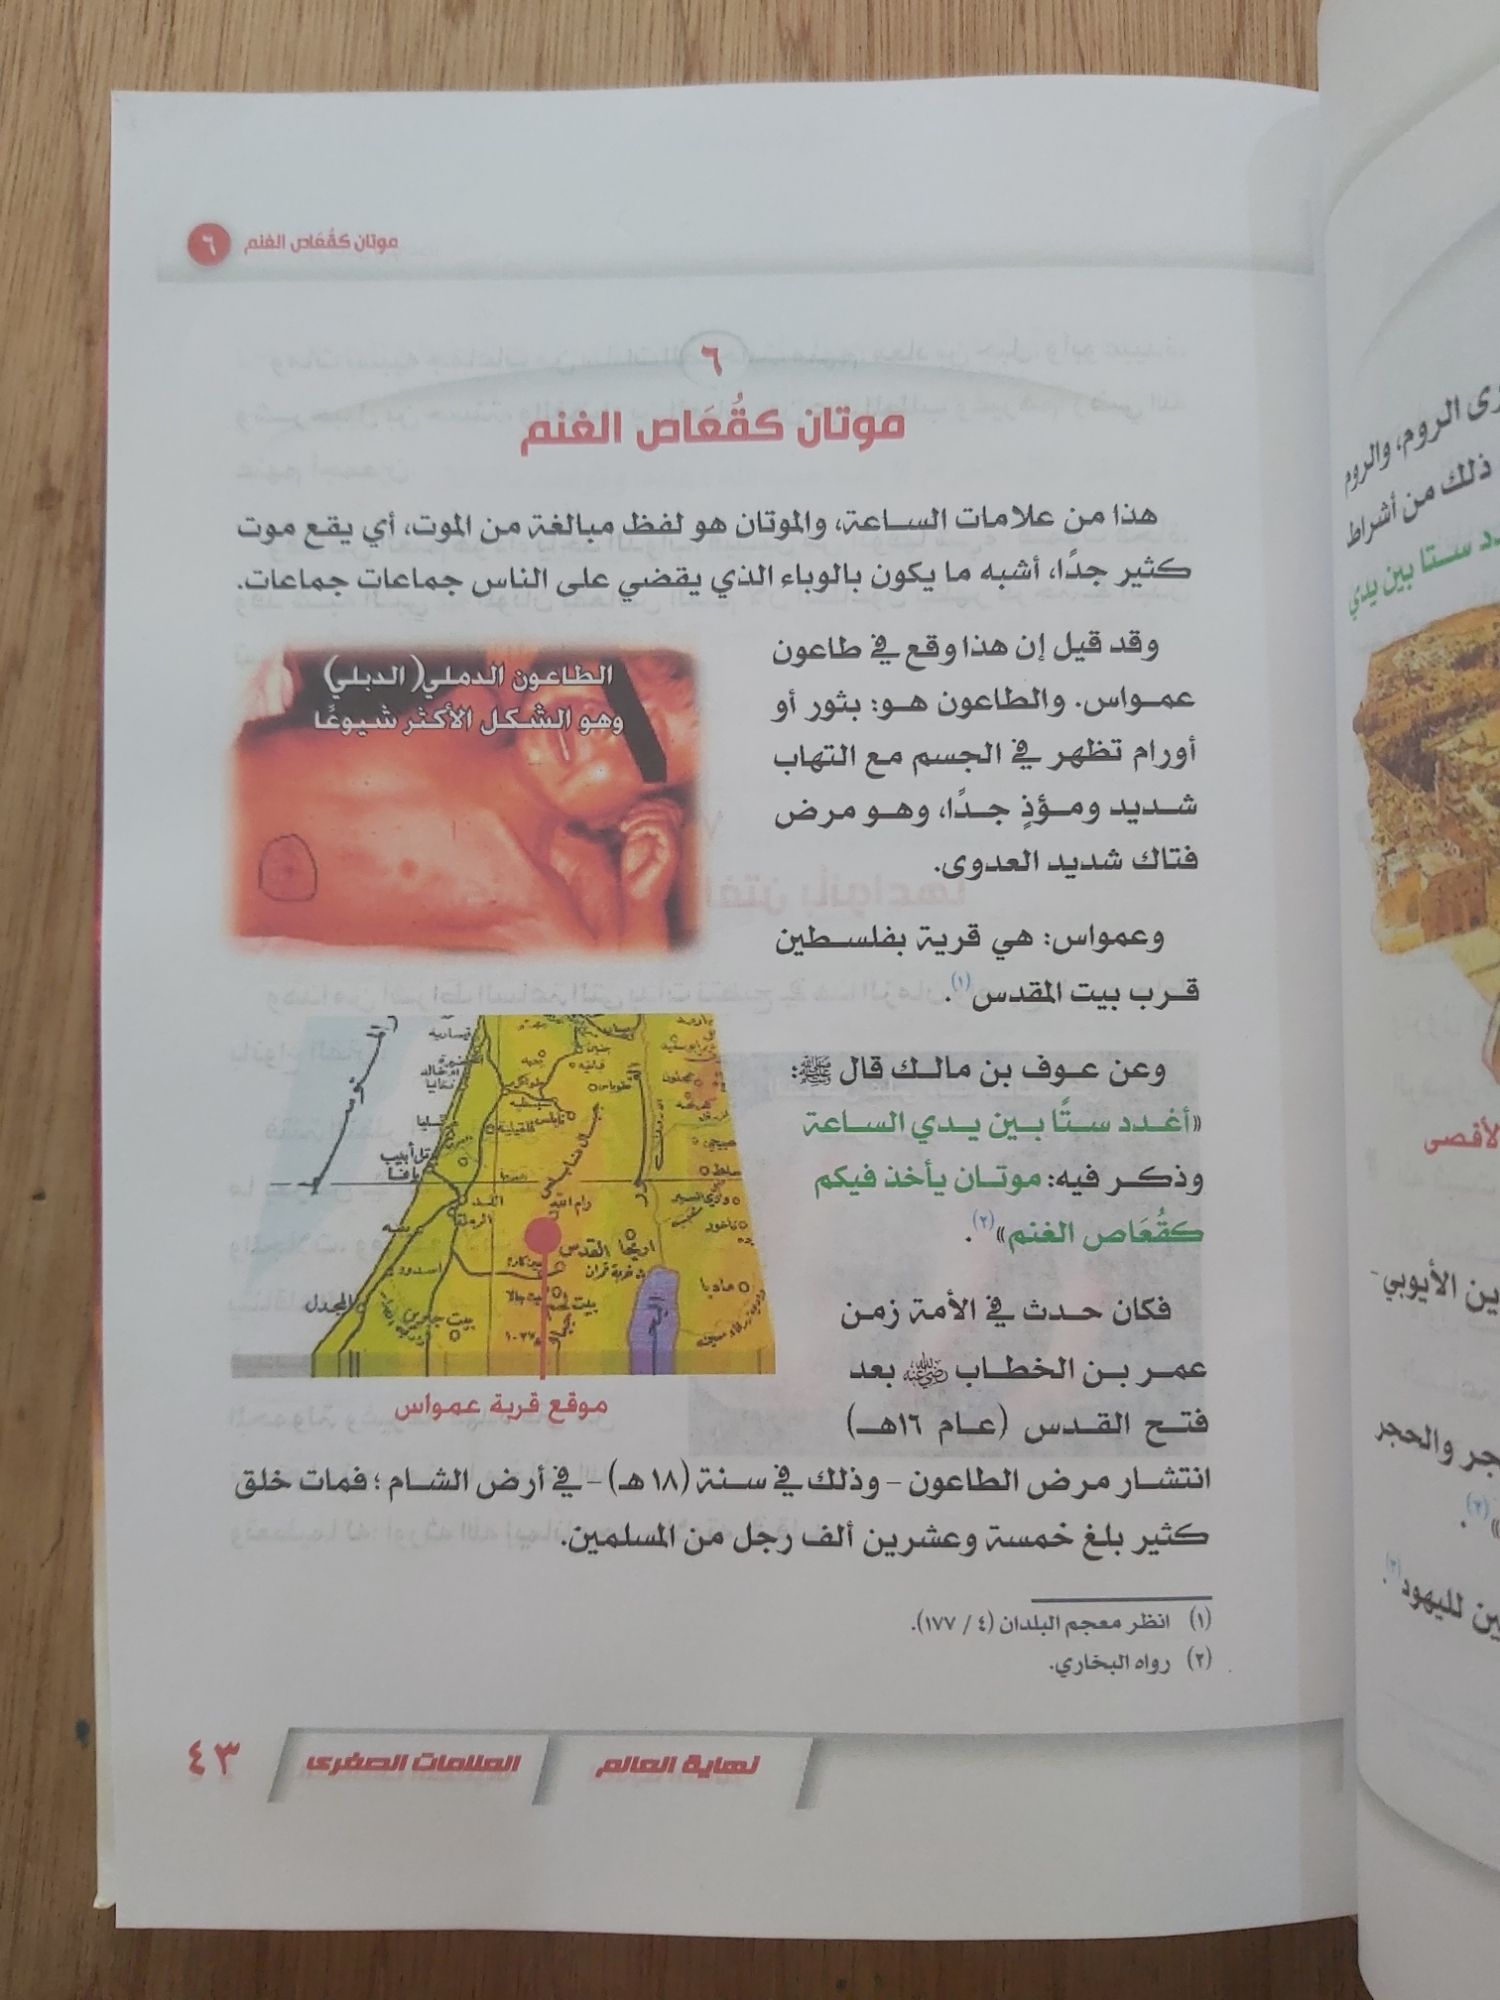 موتان كقُعَاص الغنم ٦
٦
موتان كقُعَاص الغنم
هذا من علامات الساعة، والموتان هو لفظ مبالغة من الموت، أي يقع موت
كثير جدًا، أشبه ما يكون بالوباء الذي يقضي على الناس جماعات جماعات.
وقد قيل إن هذا وقع في طاعون
عمواس. والطاعون هو: بثور أو
أورام تظهر في الجسم مع التهاب
شديد ومؤذٍ جدًا، وهو مرض
فتاك شديد العدوى.
الطاعون الدملي (الدبلي)
وهو الشكل الأكثر شيوعًا
وعمواس: هي قرية بفلسطين
قرب بيت المقدس(١).
وعن عوف بن مالك قال ﷺ:
«أغدد ستًا بين يدي الساعة
وذكر فيه: موتان يأخذ فيكم
كقُعَاص الغنم»(٢).
تل أبيب
يافا
نابلس
قلقيلية
رام الله
الرملة
القدس
اريحا
اسدود
المجدل
بيت جالا
مادبا
موقع قرية عمواس
فكان حدث في الأمة زمن
عمر بن الخطاب رضي الله عنه بعد
فتح القدس (عام ١٦هـ)
انتشار مرض الطاعون - وذلك في سنة (١٨ هـ) - في أرض الشام؛ فمات خلق
كثير بلغ خمسة وعشرين ألف رجل من المسلمين.
(١) انظر معجم البلدان (٤ / ١٧٧).
(٢) رواه البخاري.
نهاية العالم العلامات الصغرى ٤٣
ى الروم، والروم
ذلك من أشراط
ستا بين يدي
لأقصى
ين الأيوبي -
جر والحجر
»(٢).
ين لليهود(٣).